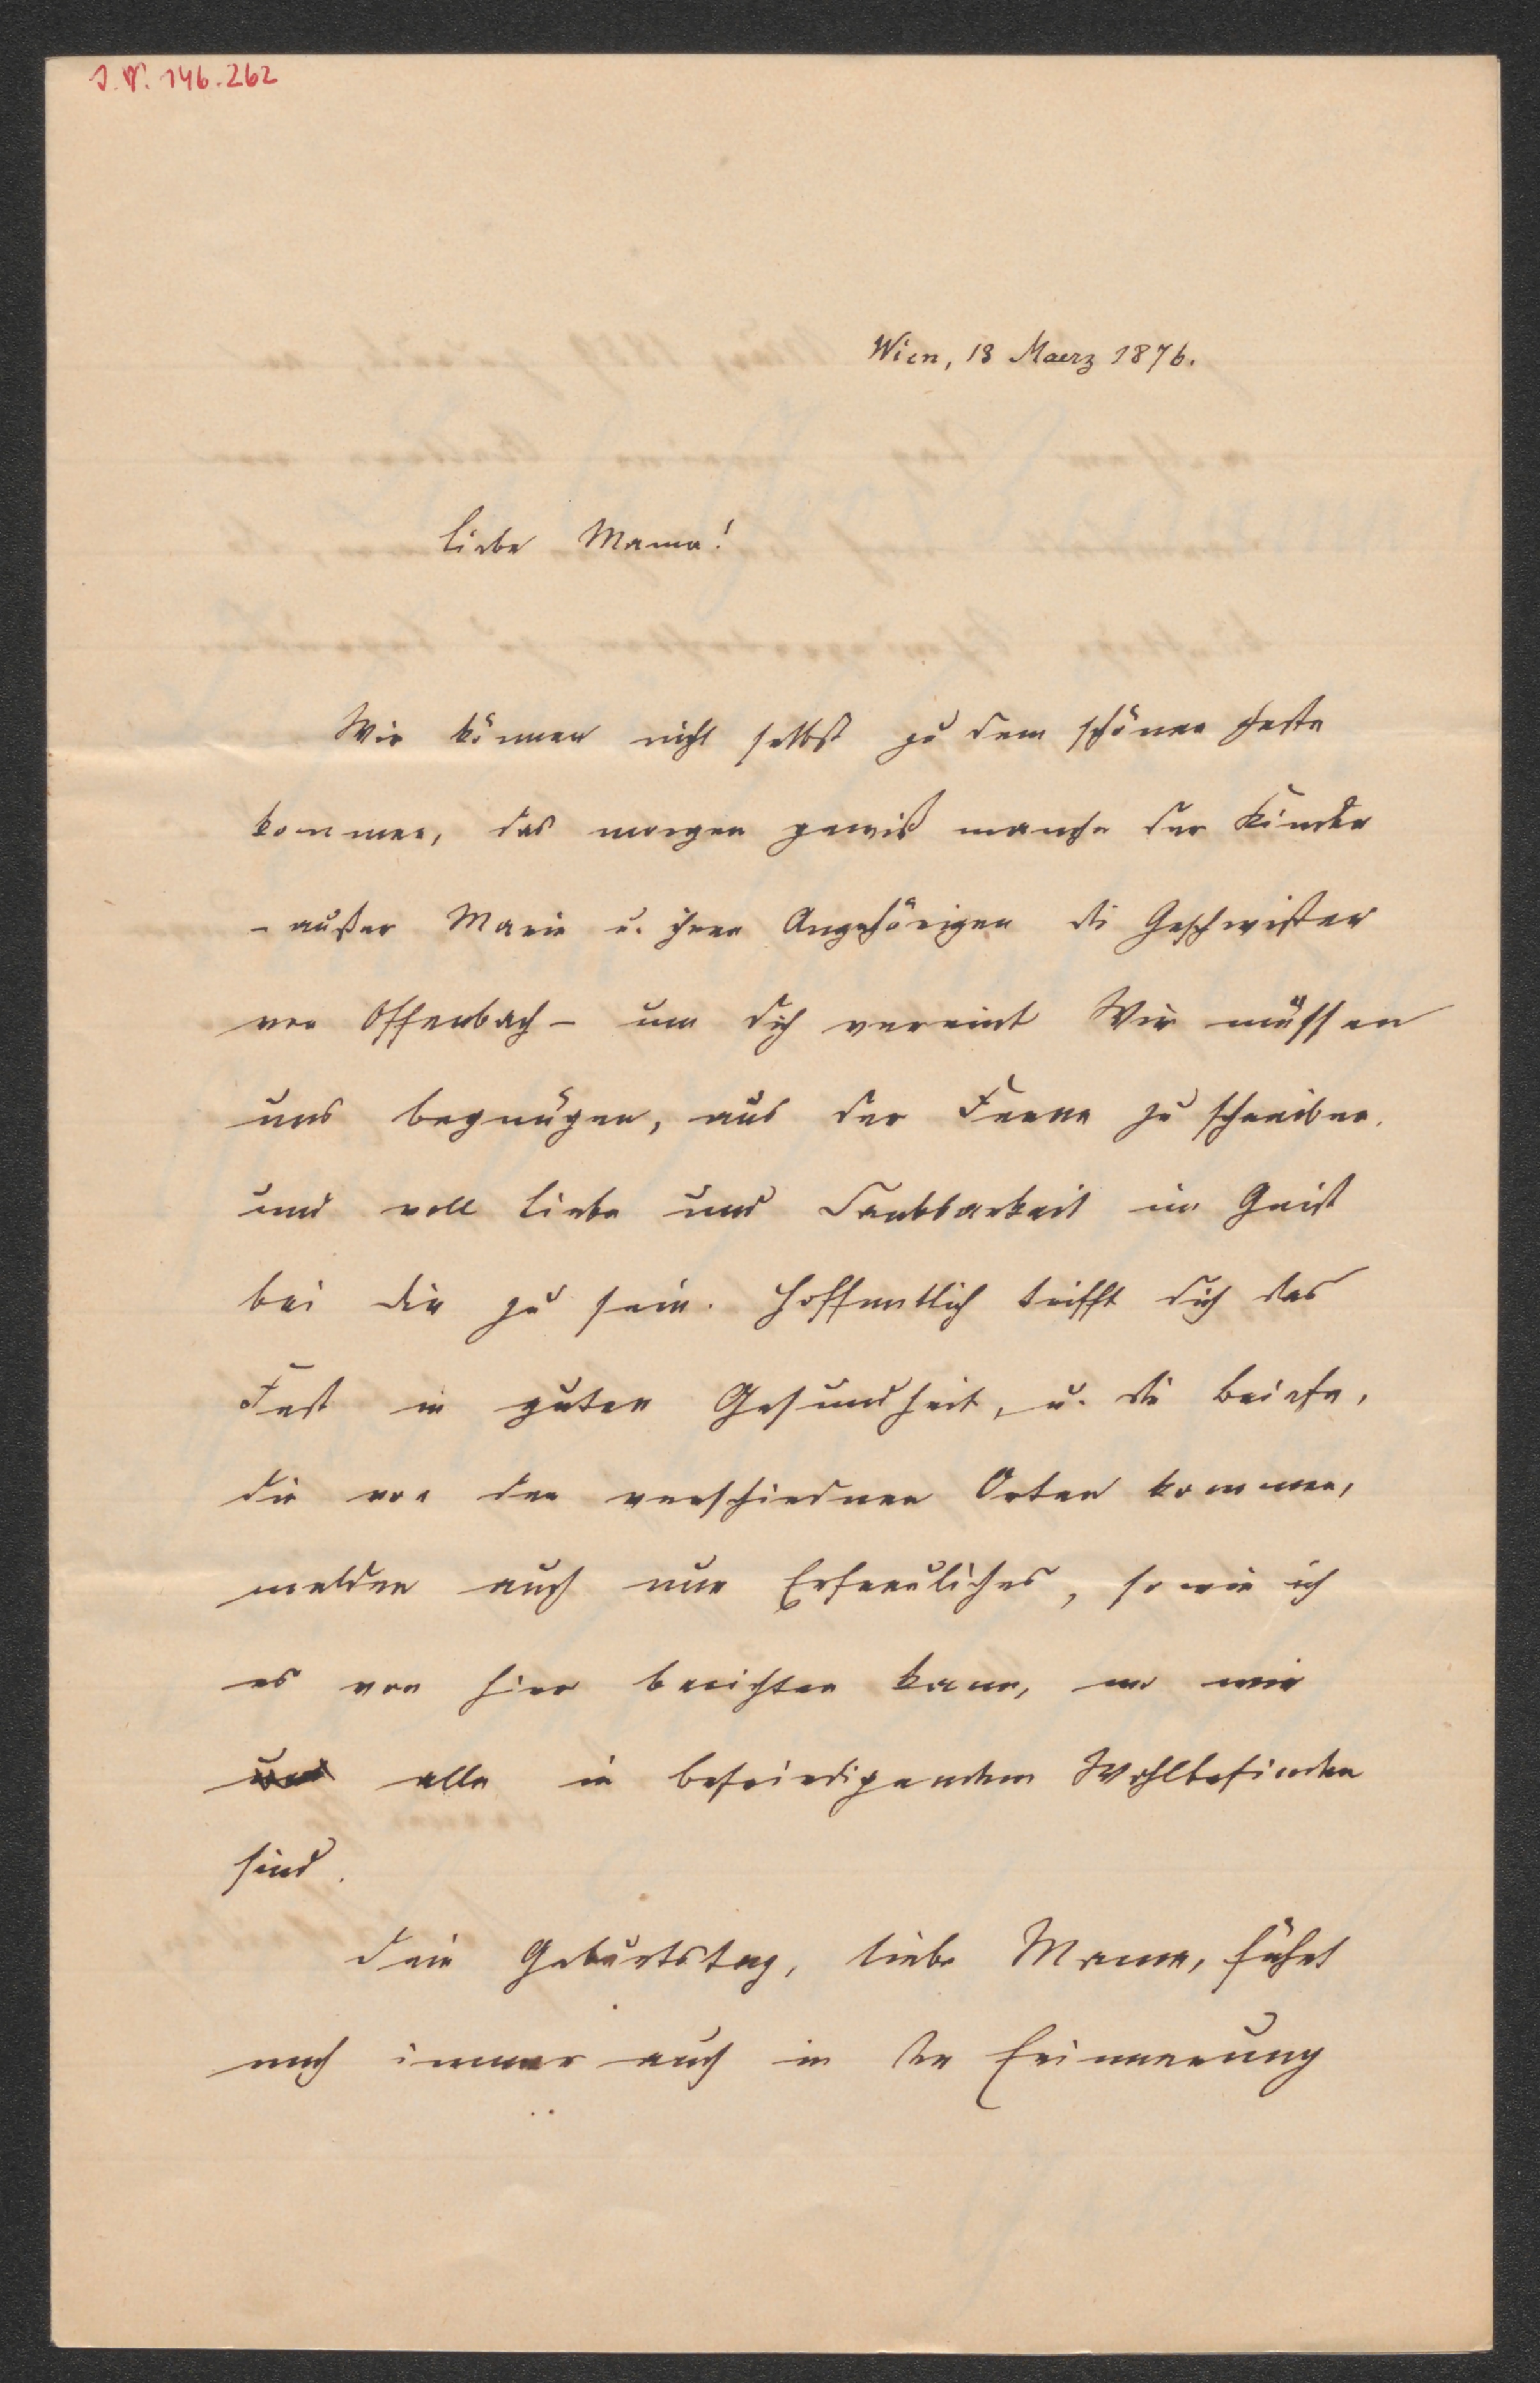 J.N. 146.262
Wien, 18 Maerz 1876.
Liebe Mama!
Wir können nicht selbst zu dem schönen Feste
kommen, das morgen gewiß manche der Kinder
- außer Marie u. ihren Angehörigen die Geschwister
von Offenbach - um dich vereint Wir müssen
uns begnügen, aus der Ferne zu schreiben.
und voll Liebe und Dankbarkeit im Geist
bei dir zu sein. Hoffentlich trifft dich das
Fest in guter Gesundheit, u. die Briefe,
die von den verschiednen Orten kommen,
melden auch nur Erfreuliches, so wie ich
es von hier berichten kann, wo wir
alle in befriedigendem Wohlbefinden
sind.
Dein Geburtstag, liebe Mama, führt
mich immer auch in die Erinnerung